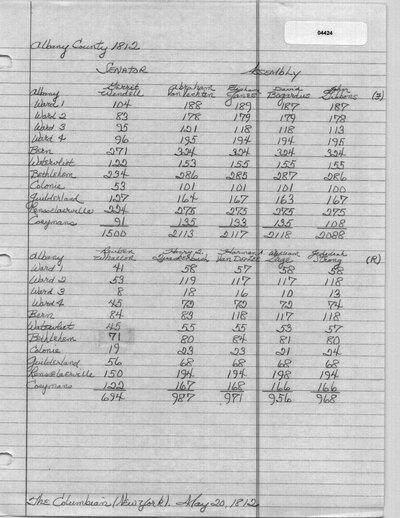 04424
Albany County 1812
SENATOR ASSEMBLY
Albany Gerrit Wendell Abraham Van Vechten Stephen Janes David Bogardus John Gibbons (F)
Ward 1 104 188 189 187 187
Ward 2 83 178 179 179 178
Ward 3 95 121 118 118 113
Ward 4 96 195 194 194 195
Bern 271 324 324 324 324
Watervliet 122 153 155 155 155
Bethlehem 234 286 285 287 286
Colonie 53 101 101 101 100
Guilderland 127 164 167 163 167
Rensselaerville 224 275 275 275 275
Coeymans 91 135 133 135 108
1500 2113 2117 2118 2088
Albany Reuben Whallon Harmanus Van William Page Jedediah Strong (R)
Ward 1 41 58 57 58 58
Ward 2 53 119 117 117 118
Ward 3 8 18 16 10 13
Ward 4 45 72 72 72 74
Bern 84 83 118 117 118
Watervliet 45 55 55 53 57
Bethlehem 71 80 84 81 80
Colonie 19 23 23 21 24
Guilderland 56 68 68 68 68
Rensselaerville 150 194 194 198 194
Coeymans 122 167 168 166 166
694 987 971 956 968
The Columbian (New York). May 20, 1812